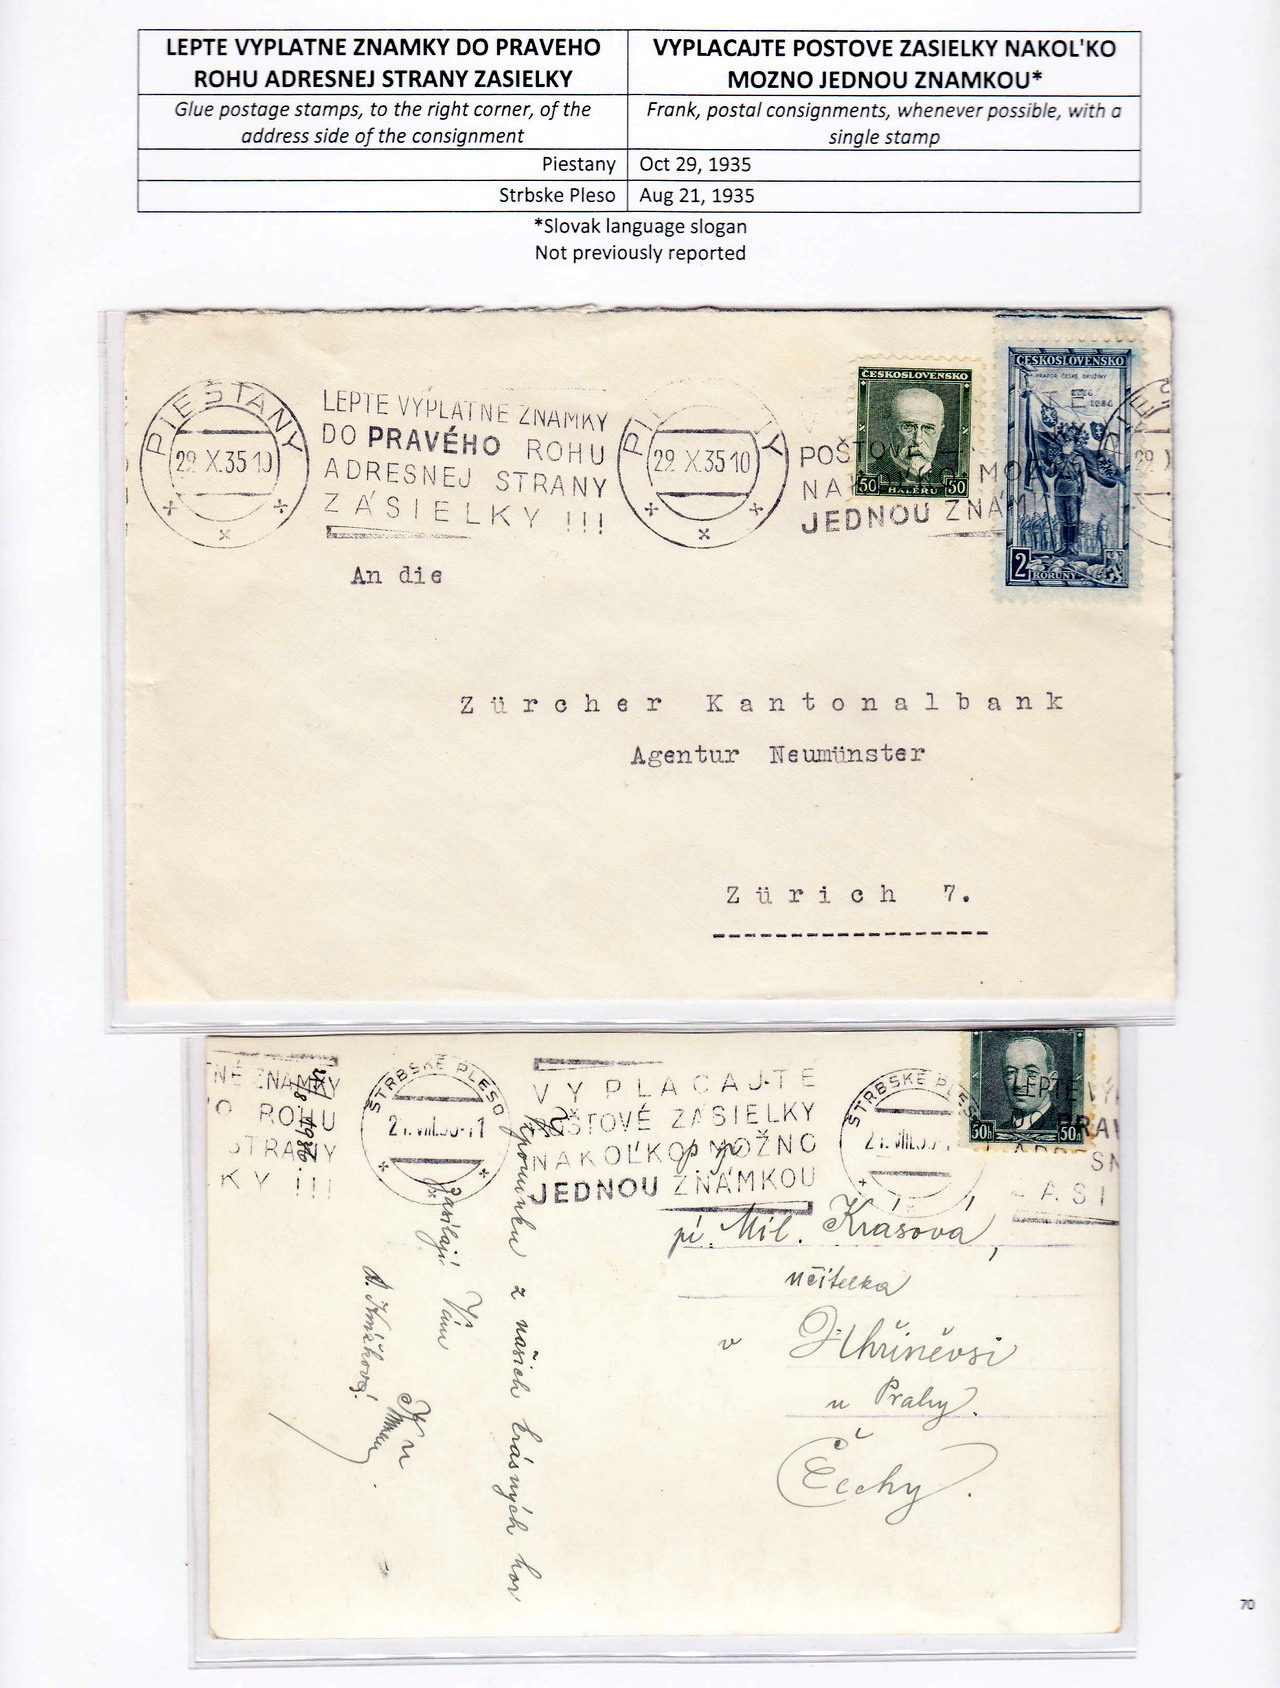 LEPTE VYPLATNE ZNAMKY DO PRAVEHO
ROHU ADRESNEJ STRANY ZASIELKY
VYPLACAJTE POSTOVE ZASIELKY NAKOL'KO
MOZNO JEDNOU ZNAMKOU*
Glue postage stamps, to the right corner, of the
address side of the consignment
Frank, postal consignments, whenever possible, with a
single stamp
Piestany
Oct 29, 1935
Strbske Pleso
Aug 21, 1935
*Slovak language slogan
Not previously reported
PIEŠŤANY
29.X.35 10
LEPTE VÝPLATNÉ ZNÁMKY
DO PRAVÉHO ROHU
ADRESNEJ STRANY
ZÁSIELKY !!!
29.X.35 10
POŠTOVÉ
JEDNOU ZNÁM
ČESKOSLOVENSKO
50 HALÉŘŮ 50
ČESKOSLOVENSKO
PRAPOR ČESKÉ DRUŽINY
1914
1934
2 KORUNY
29.X
An die
Zürcher Kantonalbank
Agentur Neumünster
Zürich 7.
NÉ ZNÁMKY
ROHU
STRANY
KY !!!
ŠTRBSKÉ PLESO
VYPLÁCAJTE
POŠTOVÉ ZÁSIELKY
NAKOĽKO MOŽNO
JEDNOU ZNÁMKOU
ŠTRBSKÉ PLESO
50h 50h
LEPTE VÝ
PRAV
ADRESN
ZÁSI
Vzpomínku z našich krásných hor
zasílají Vám
pí. Mil. Krásová,
učitelka
v Uhříněvsi
u Prahy.
Čechy.
70